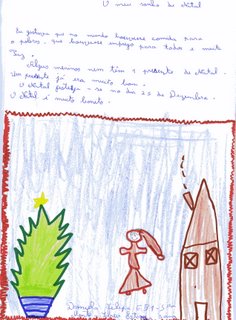 O meu sonho de Natal
Eu gostava que no mundo houvesse comida para
o pobres, que houvesse emprego para todos e muita
Paz.
Alguns meninos nem têm 1 presente de Natal.
Um presente já era muito bom.
O Natal festeja-se no dia 25 de Dezembro.
O Natal é muito bonito.
Daniela Filipa